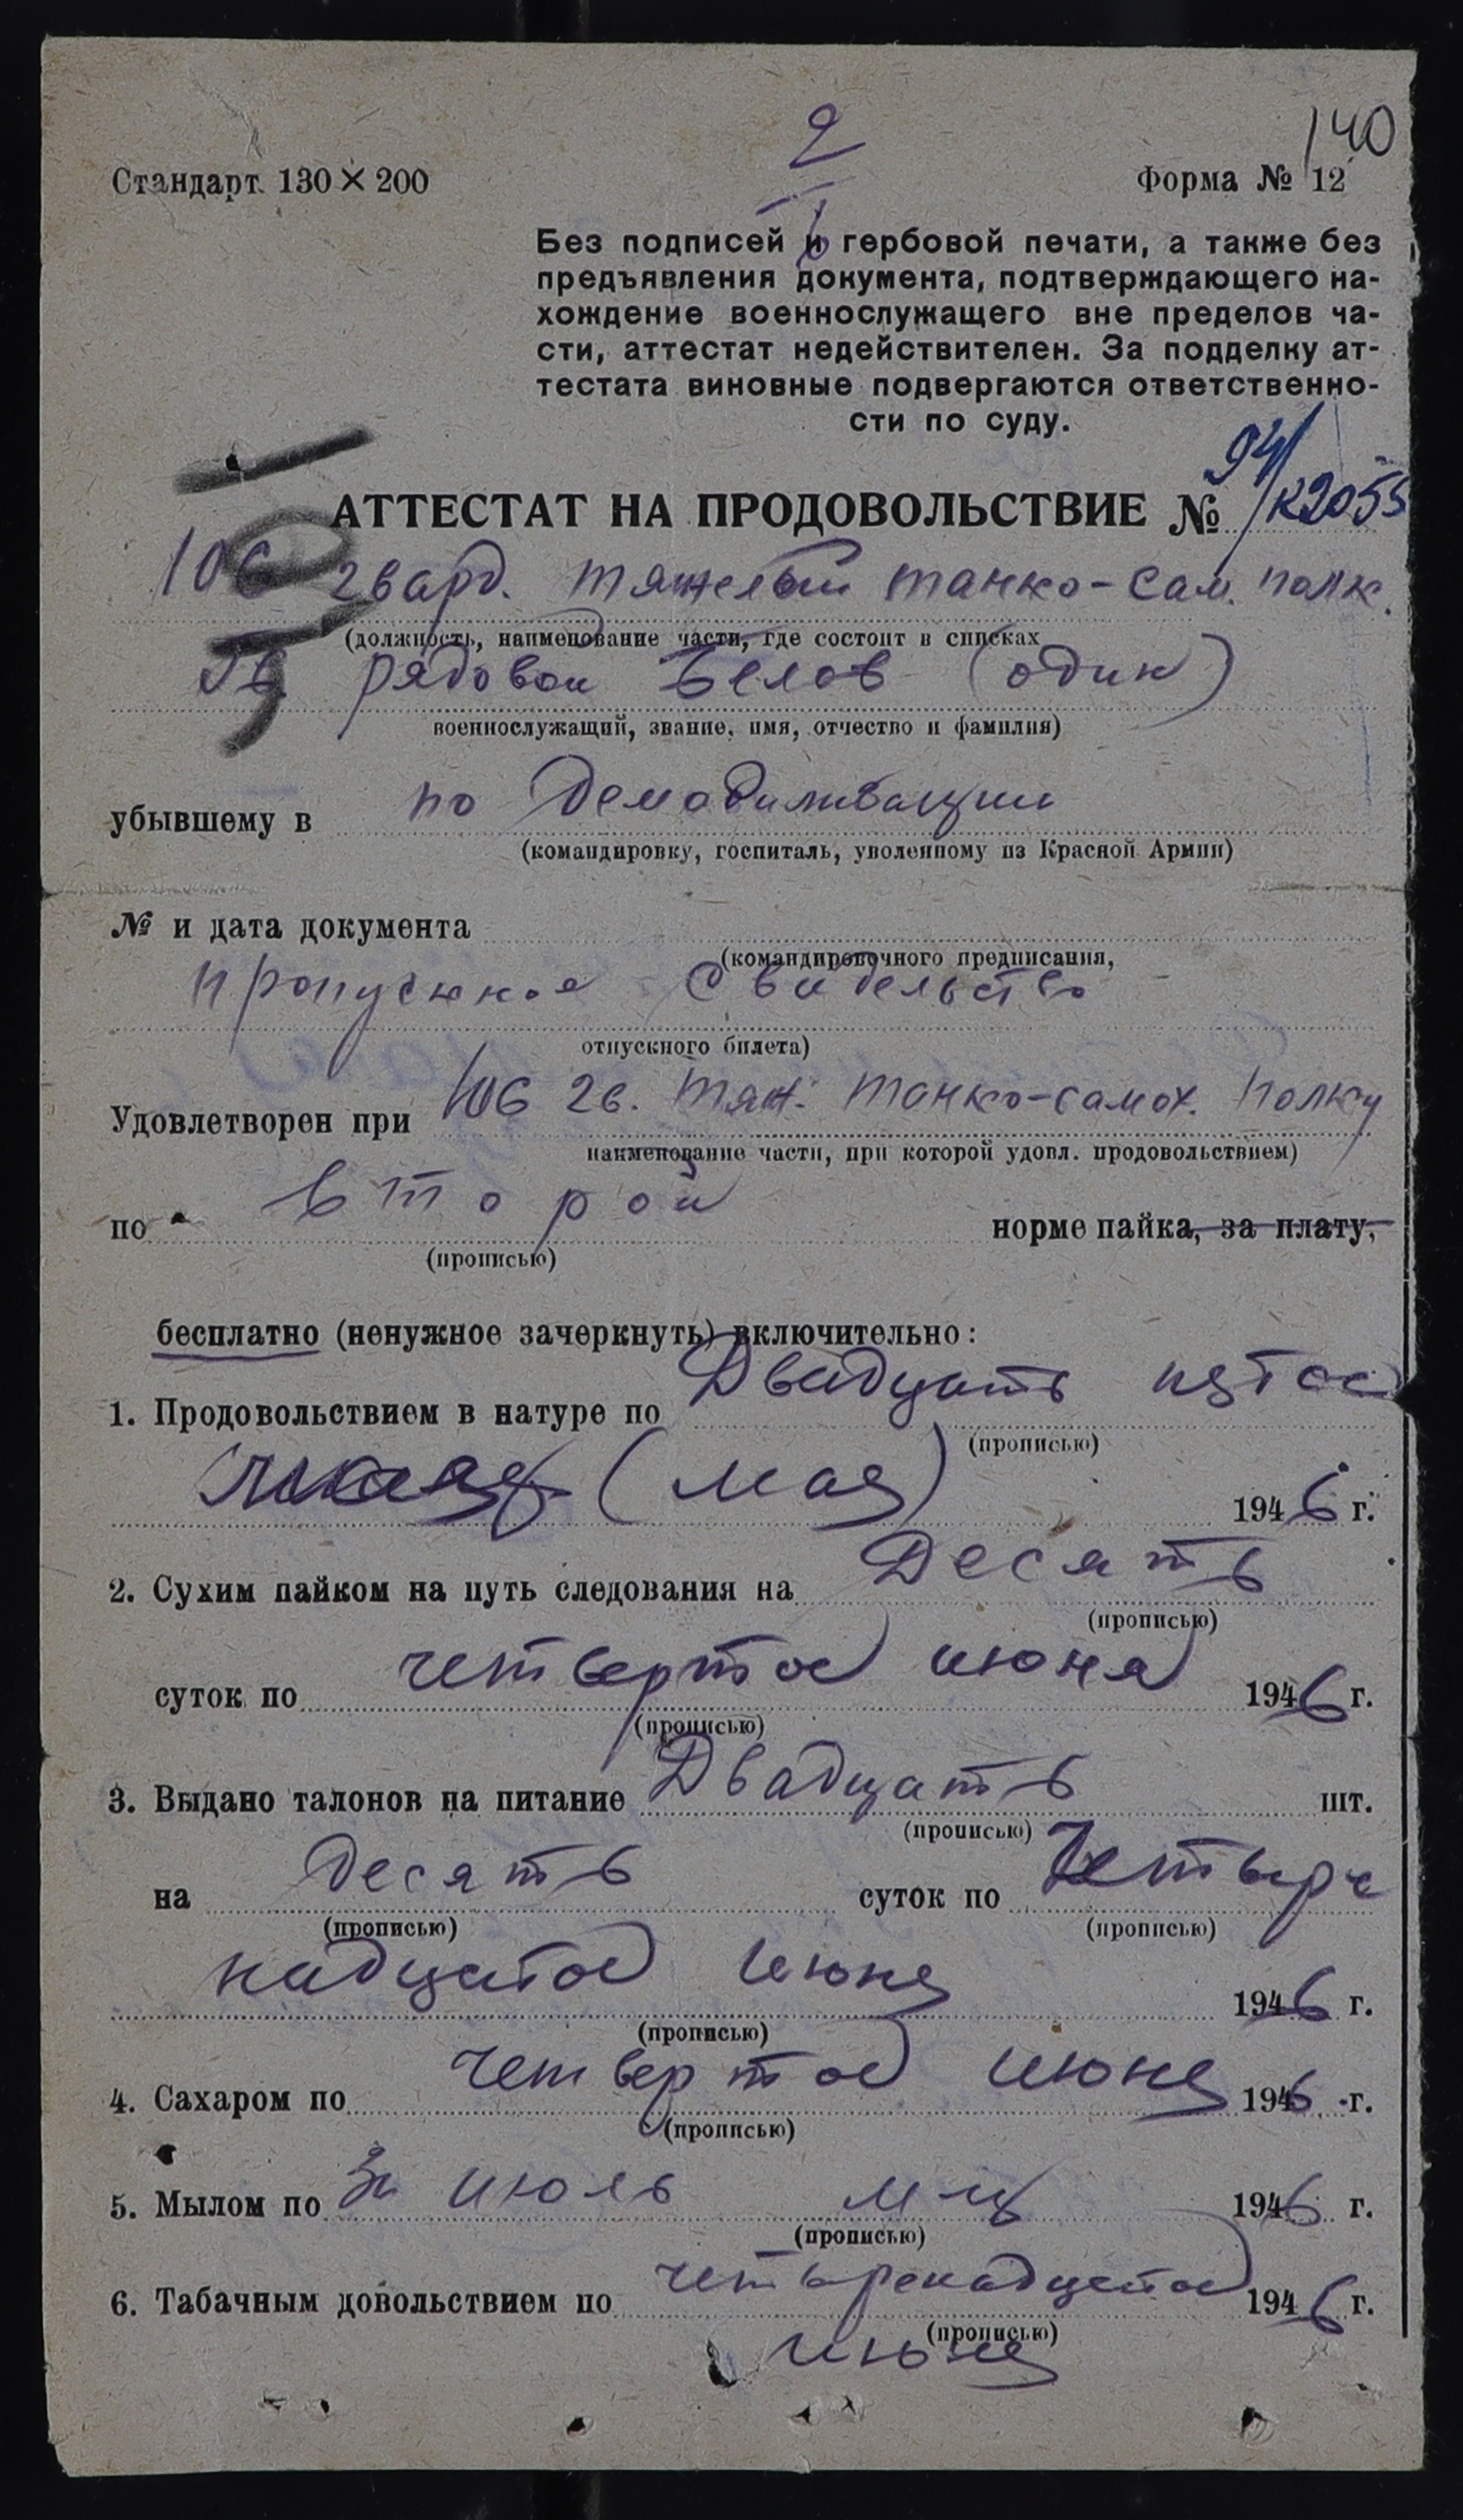 140
2
Стандарт 130×200
Форма № 12
Без подписей и гербовой печати, а также без
предъявления документа, подтверждающего на-
хождение военнослужащего вне пределов ча-
сти, аттестат недействителен. За подделку ат-
тестата виновные подвергаются ответственно-
сти по суду.
АТТЕСТАТ НА ПРОДОВОЛЬСТВИЕ № 94/К2055
106 гвард. тяжелый танко-сам. полк.
(должность, наименование части, где состоит в списках
Гв. рядовой Белов (один)
военнослужащий, звание, имя, отчество и фамилия)
убывшему в по демобилизации
(командировку, госпиталь, уволенному из Красной Армии)
№ и дата документа
(командировочного предписания,
пропускное свидельство
отпускного билета)
Удовлетворен при 106 гв. тяж. танко-самох. полку
наименование части, при которой удовл. продовольствием)
по второй норме пайка, за плату,
(прописью)
бесплатно (ненужное зачеркнуть) включительно:
1. Продовольствием в натуре по Двадцать пятое
(прописью)
(мая) 1946 г.
2. Сухим пайком на путь следования на Десять
(прописью)
суток по четвертое июня 1946 г.
(прописью)
3. Выдано талонов на питание Двадцать шт.
(прописью)
на десять суток по Четырe
(прописью) (прописью)
надцатое июня 1946 г.
(прописью)
4. Сахаром по четвертое июня 1946 г.
(прописью)
5. Мылом по за июль м-ц 1946 г.
(прописью)
6. Табачным довольствием по четыренадцатое 1946 г.
(прописью)
июня